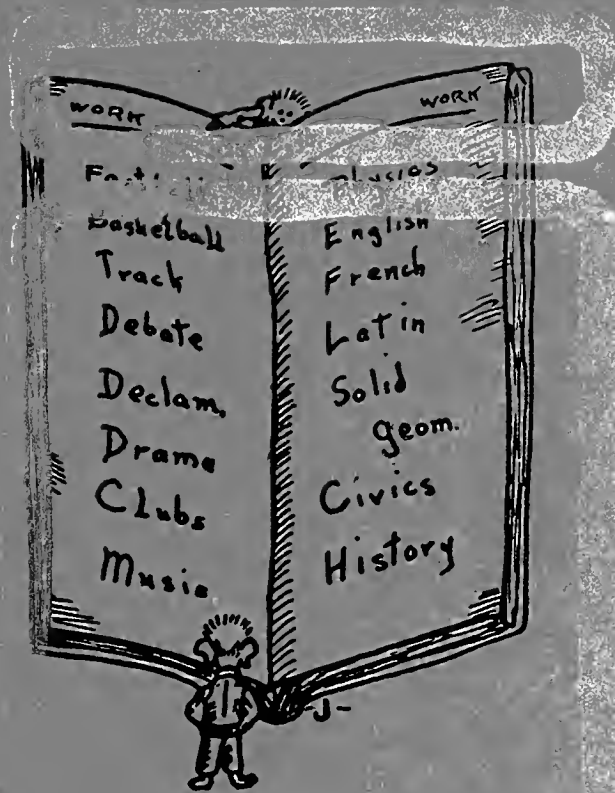 WORK
Basketball
Track
Debate
Declam.
Drama
Clubs
Music
WORK
Physics
English
French
Latin
Solid
geom.
Civics
History
-J-